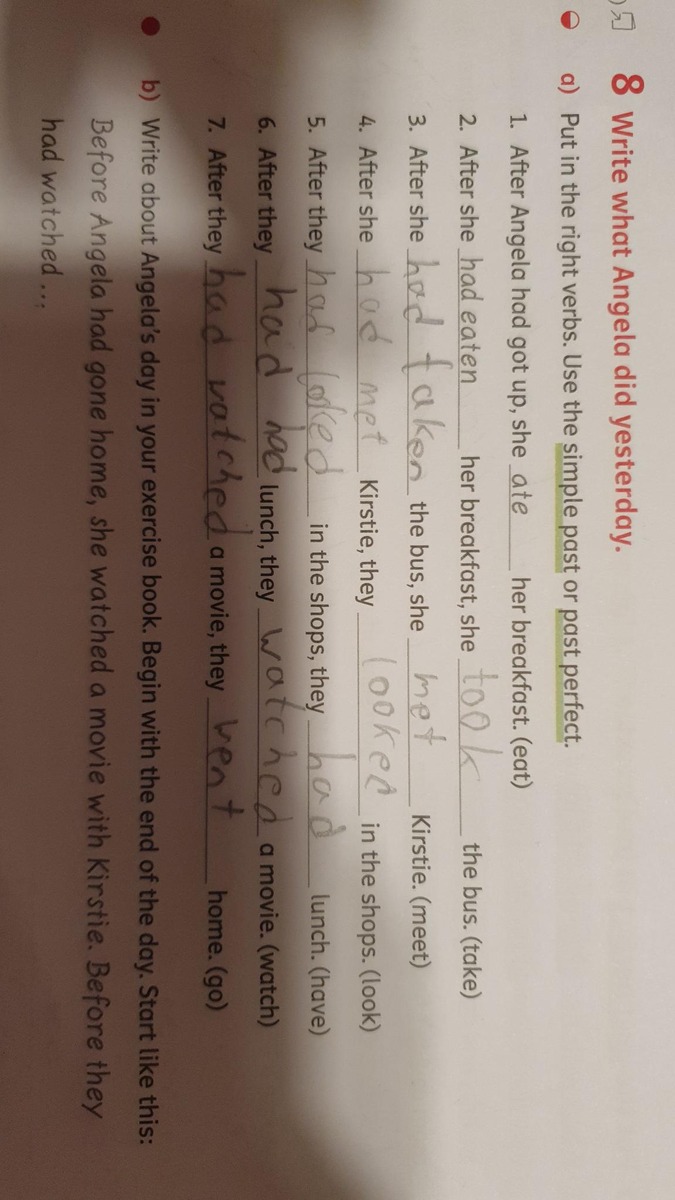 8 Write what Angela did yesterday.
a) Put in the right verbs. Use the simple past or past perfect.
1. After Angela had got up, she ate her breakfast. (eat)
2. After she had eaten her breakfast, she took the bus. (take)
3. After she had taken the bus, she met Kirstie. (meet)
4. After she had met Kirstie, they looked in the shops. (look)
5. After they had looked in the shops, they had lunch. (have)
6. After they had had lunch, they watched a movie. (watch)
7. After they had watched a movie, they went home. (go)
b) Write about Angela's day in your exercise book. Begin with the end of the day. Start like this:
Before Angela had gone home, she watched a movie with Kirstie. Before they
had watched ...